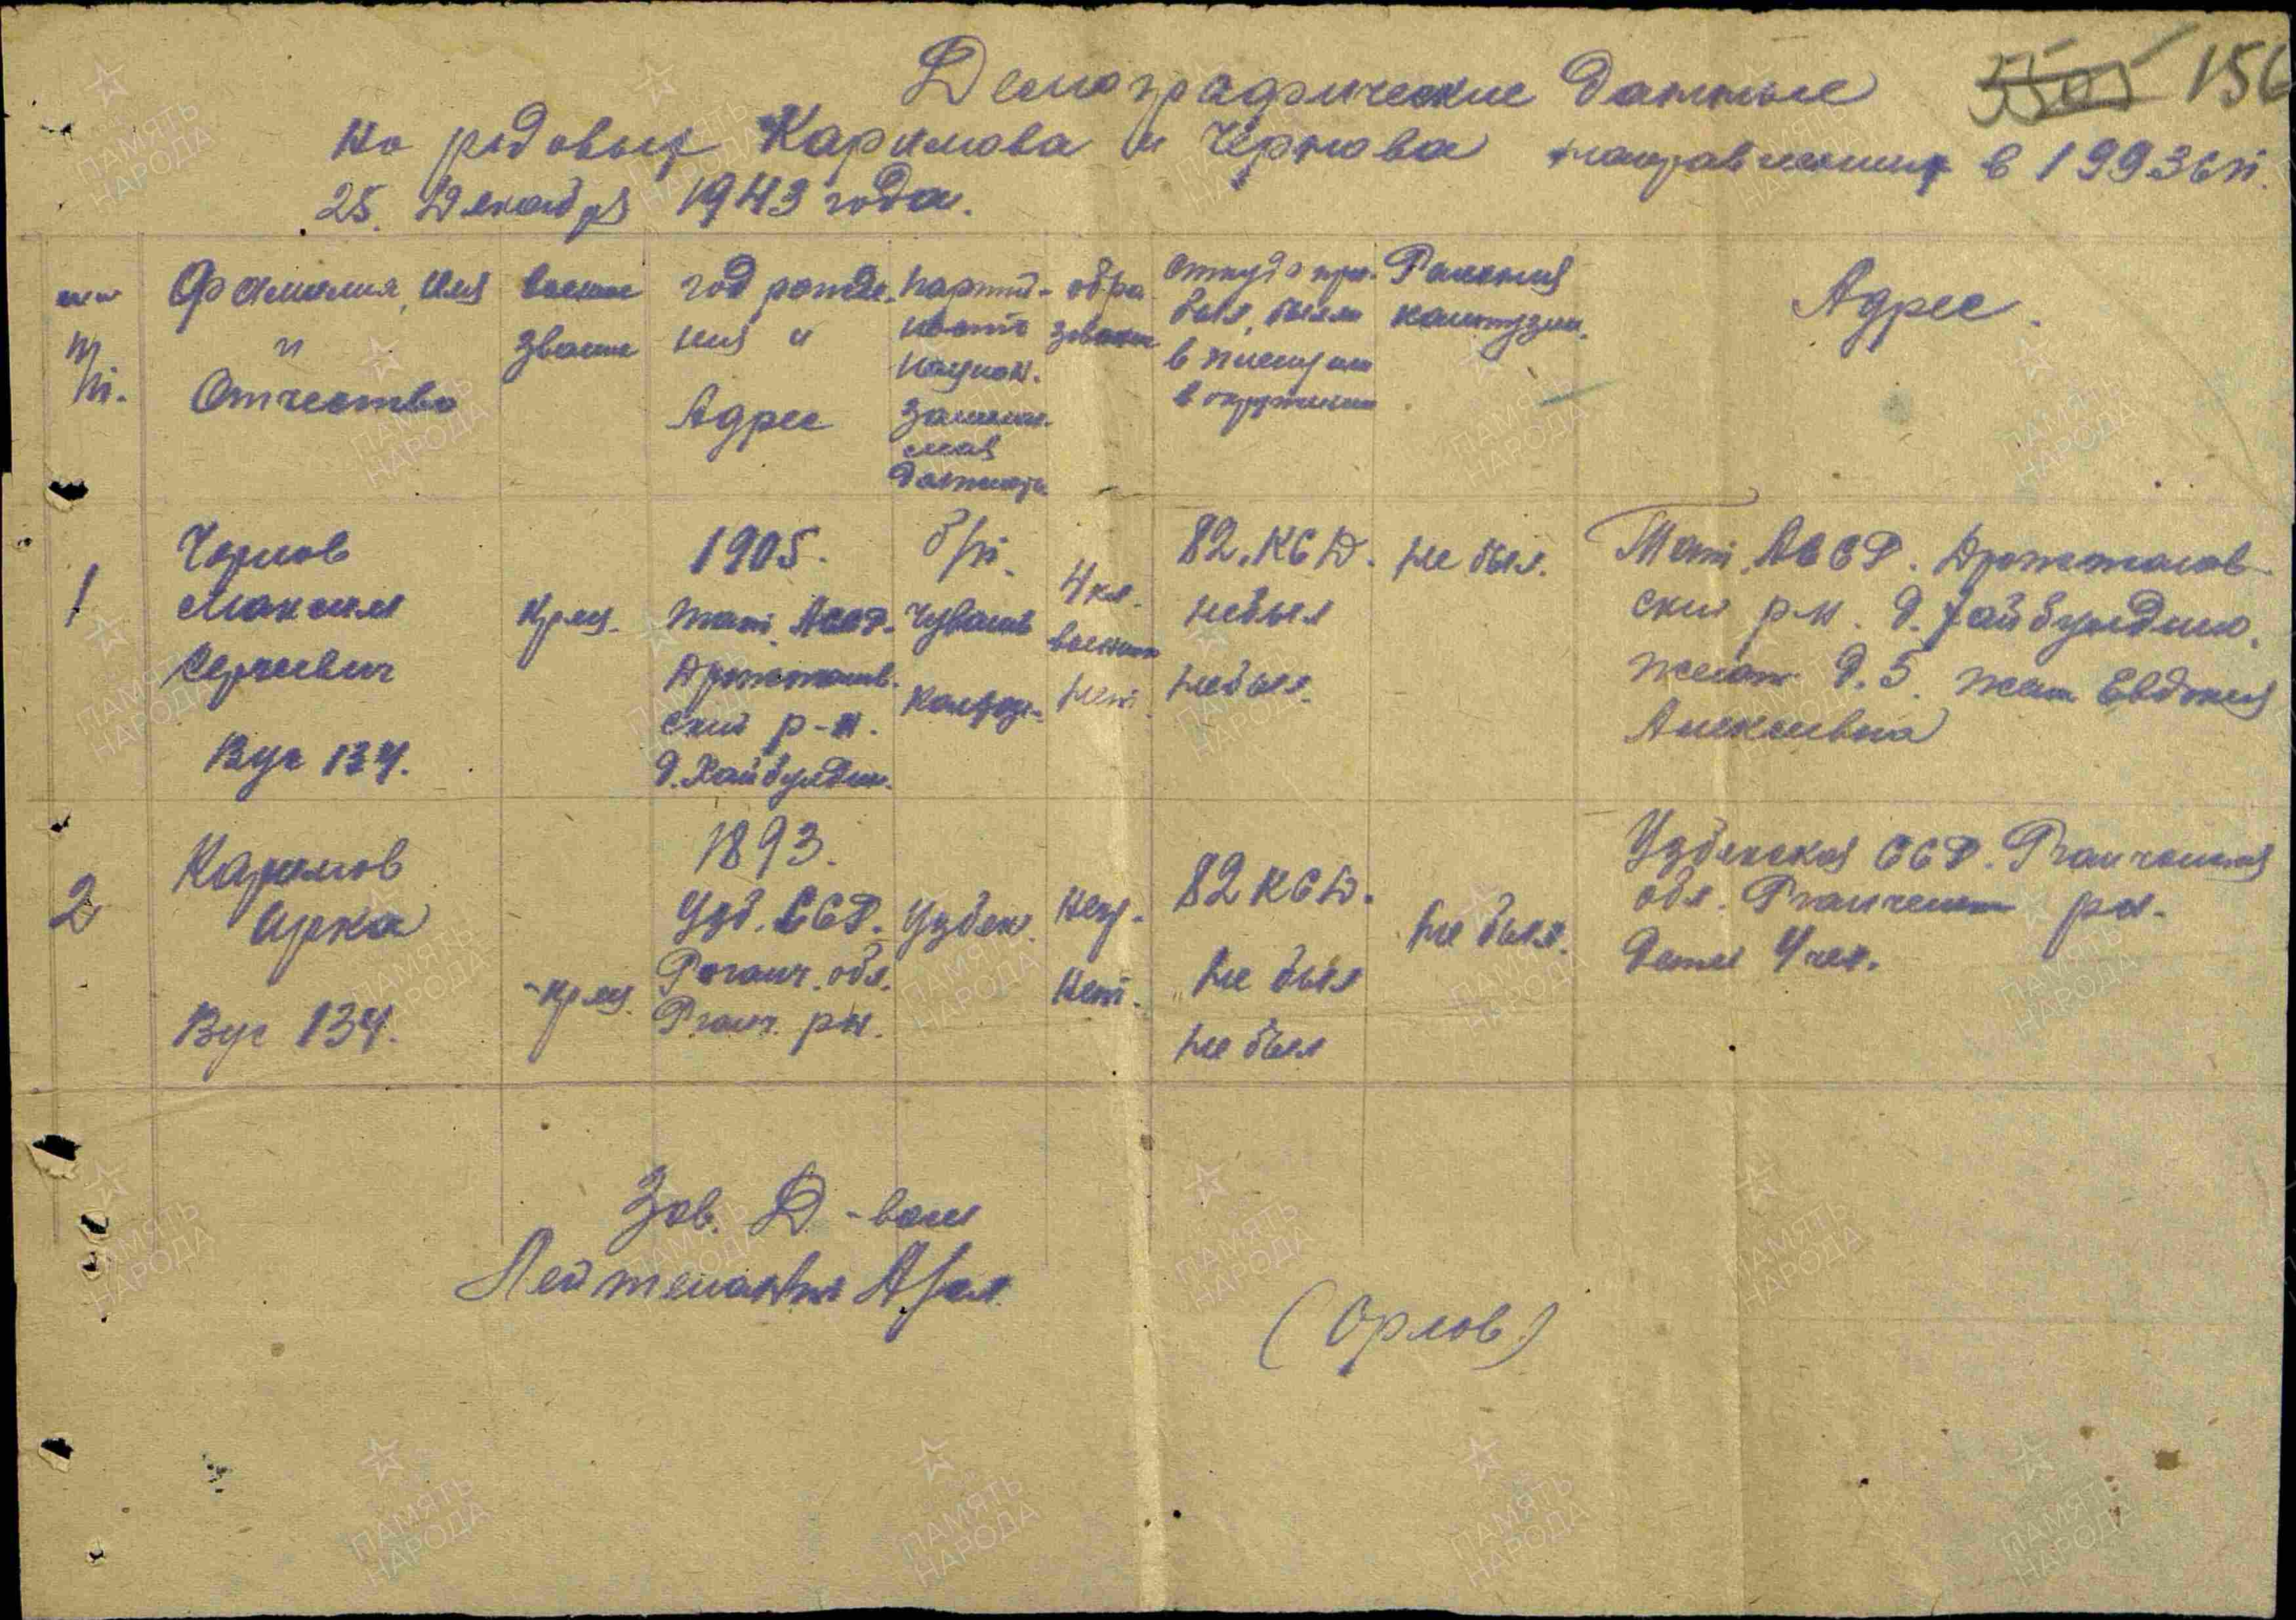 Демографические данные
156
на рядовых Каримова и Чернова направленных в 199 зсп.
25 Декабря 1943 года.
п/п.
Фамилия, Имя
и
Отчество
военн
звание
год рожде-
ния и
Адрес
партий-
ность
национ.
занимае-
мая
должность
обра
зование
Откуда при-
был, был ли
в плену или
в окружении
Ранения
контузии.
Адрес.
1
Чернов
Максим
Сергеевич
Вус 134.
Кр-ец.
1905.
Тат. АССР.
Дрожжанов-
ский р-н.
д. Хайбулдин.
б/п.
Чуваш
Колхоз-
4 кл.
военного
нет.
82. КСД.
не был
не был.
не был.
Тат. АССР. Дрожжанов-
ский р-н. д. Хайбулдино.
женат д. 5. жена Евдокия
Алексеевна
2
Каримов
Арка
Вус 134.
-кр-ец.
1893.
Узб. ССР.
Ургенч. обл.
Ургенч. р-н.
Узбек.
Негр.
нет.
82 КСД.
не был
не был
не был.
Узбекская ССР.
обл. р-н.
дети 4 чел.
Зав. Д-вом
Лейтенант
(Орлов)